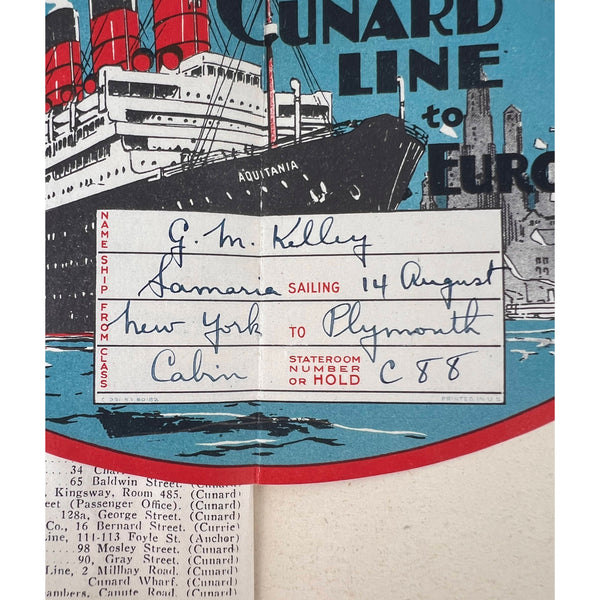 CUNARD
LINE
to
EURO
AQUITANIA
NAME G. M. Kelley
SHIP Samaria SAILING 14 August
FROM New York TO Plymouth
CLASS Cabin STATEROOM NUMBER OR HOLD C 88
PRINTED IN U.S.
34
65 Baldwin Street. (Cunard)
Kingsway, Room 485. (Cunard)
eet (Passenger Office). (Cunard)
128a, George Street. (Cunard)
Co., 16 Bernard Street. (Currie)
Line, 111-113 Foyle St. (Anchor)
98 Mosley Street. (Cunard)
90, Gray Street. (Cunard)
Line, 2 Millbay Road. (Cunard)
Cunard Wharf. (Cunard)
ambers, Canute Road. (Cunard)